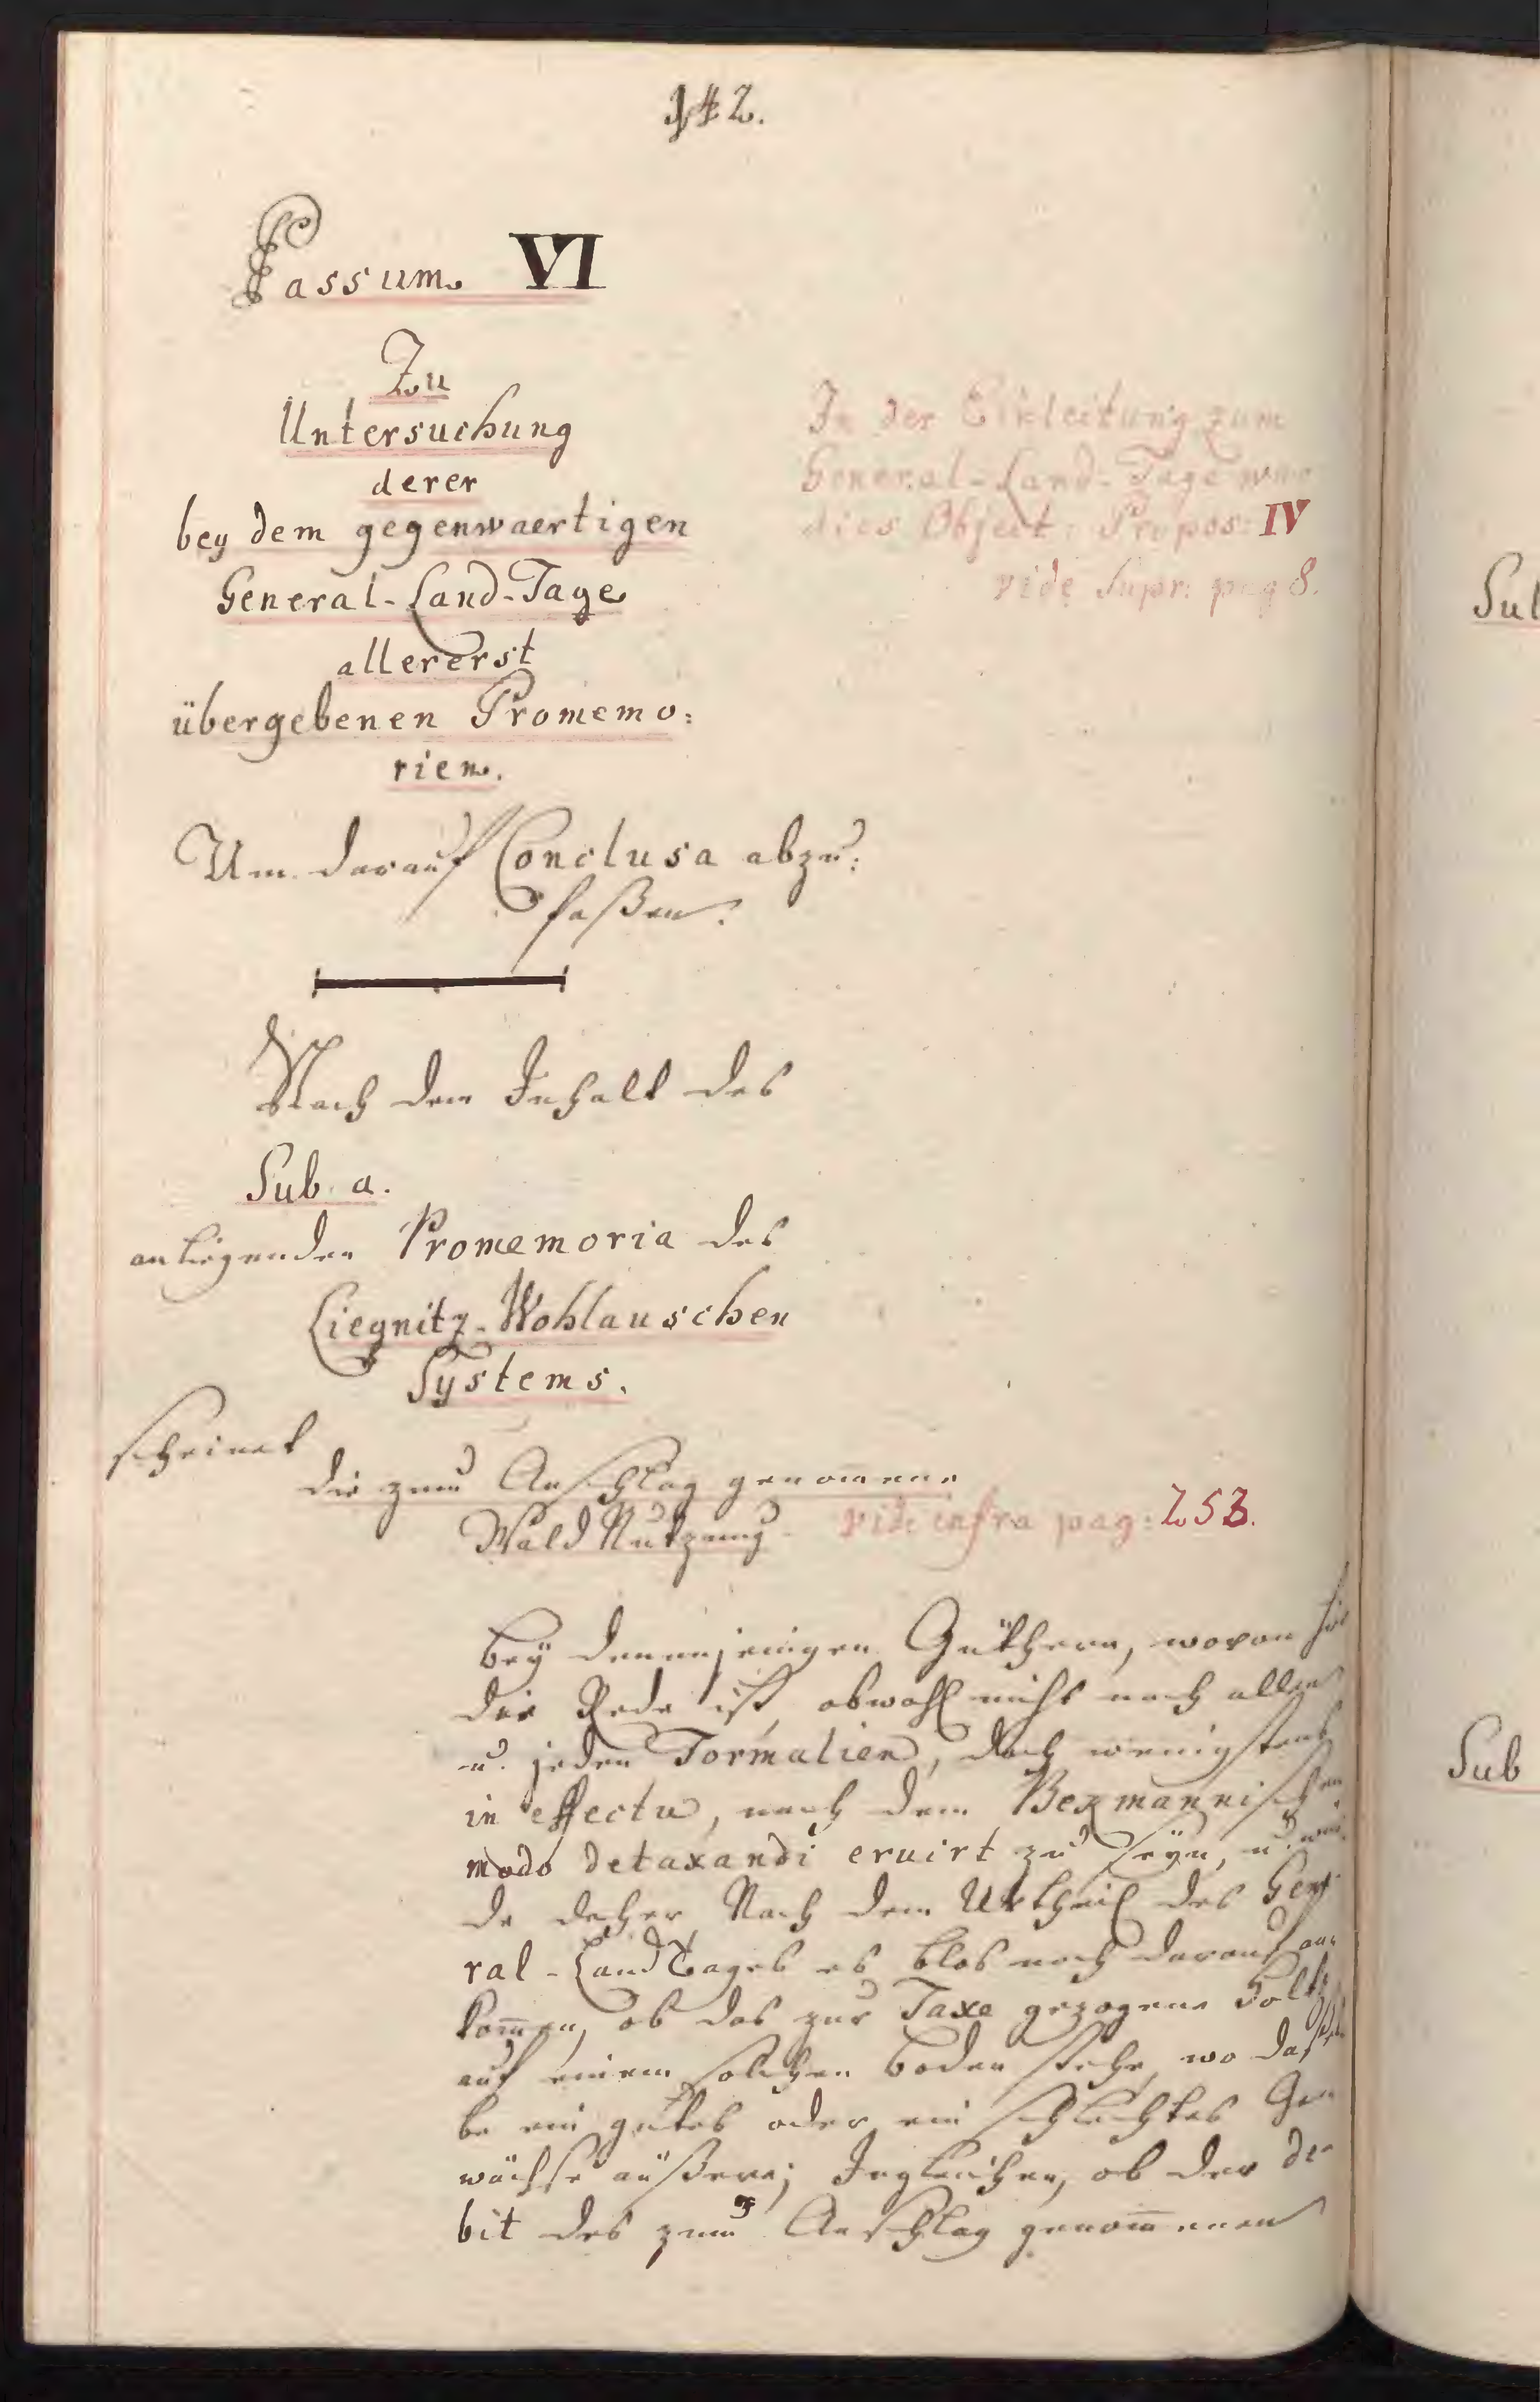 142.
Passum. VI
Zu
Untersuchung
derer
bey dem gegenwaertigen
General-Land-Tage
allererst
übergebenen Promemo:
rien.
In der Einleitung zum
General-Land-Tage war
dies Object: Propos: IV
vide Supr: pag 8.
Um darauf Conclusa abzu:
faßen.
Nach dem Inhalt des
Sub. a.
anliegenden Promemoria des
Liegnitz-Wohlauschen
Systems.
scheinet
die zum Anschlag genom̅ene
Wald Nutzung
vide infra pag: 253.
bey denenjenigen Güthern, wovon hier
die Rede ist, obwohl nicht nach allen
u. jeden Formalien, doch wenigstens
in effectu, nach dem Bezmannischen
modo detaxandi eruirt zu seyn, u. wür
de daher Nach dem Urtheil des Gene
ral-Land Tages es blos noch darauf an
kom̅en, ob das zur Taxe gezogene Holtz
auf einem solchen Boden stehe, wo dassel
be ein gutes oder ein schlechtes Ge
wächse äußere; Ingleichen, ob der De
bit des zum Anschlag genom̅enen
Sub